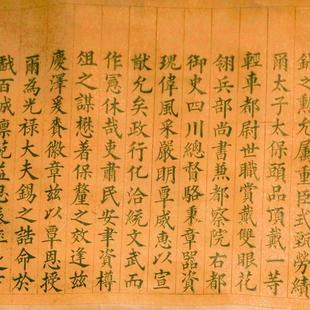 錫之勲光屬重臣式彰勞績
爾太子太保頭品頂戴一等
輕車都尉世職賞戴雙眼花
翎兵部尚書兼都察院右都
御史四川總督駱秉章器資
瑰偉風采嚴明覃威惠以宣
猷允矣政行化洽統文武而
作憲休哉吏肅民安聿資樽
俎之謀懋著保釐之效逢兹
慶澤爰賁徽章兹以覃恩授
爾為光禄大夫錫之誥命於
戲百城凛範益思表率之